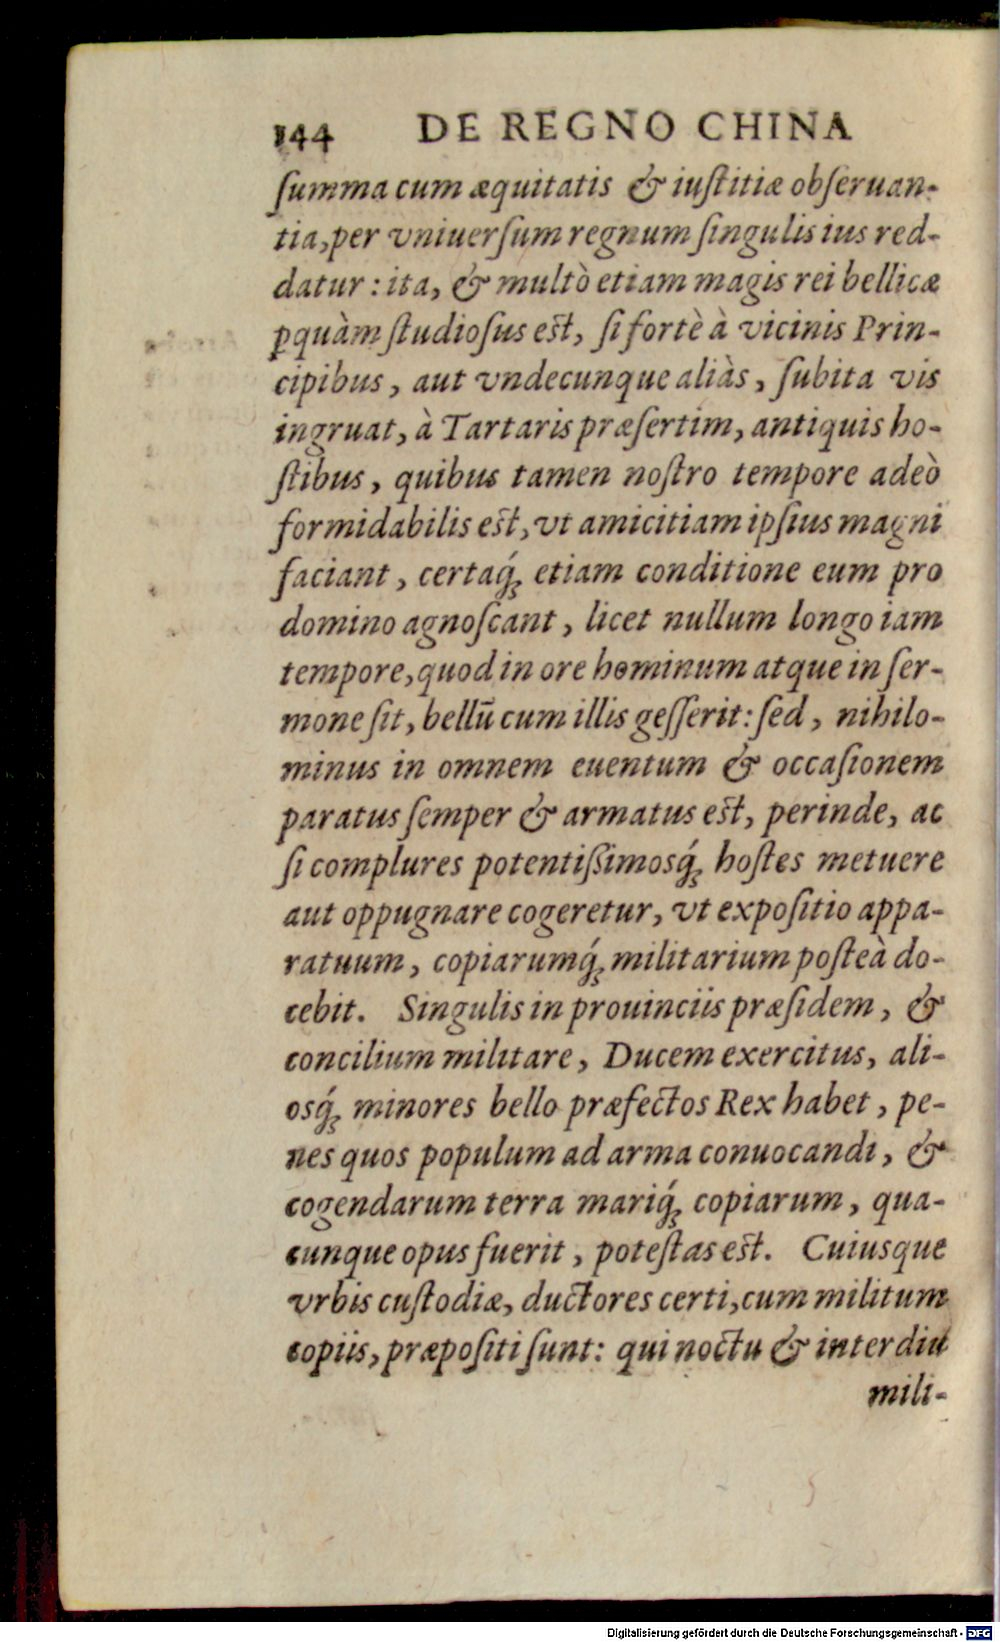 144 DE REGNO CHINA
ſumma cum æquitatis & iuſtitiæ obſeruan-
tia, per vniuerſum regnum ſingulis ius red-
datur: ita, & multò etiam magis rei bellicæ
ꝑquàm ſtudioſus eſt, ſi fortè à vicinis Prin-
cipibus, aut vndecunque aliàs, ſubita vis
ingruat, à Tartaris præſertim, antiquis ho-
ſtibus, quibus tamen noſtro tempore adeò
formidabilis eſt, vt amicitiam ipſius magni
faciant, certaq́; etiam conditione eum pro
domino agnoſcant, licet nullum longo iam
tempore, quod in ore hominum atque in ſer-
mone ſit, bellū cum illis geſſerit: ſed, nihilo-
minus in omnem euentum & occaſionem
paratus ſemper & armatus eſt, perinde, ac
ſi complures potentiſſimosq́; hoſtes metuere
aut oppugnare cogeretur, vt expoſitio appa-
ratuum, copiarumq́; militarium poſteà do-
cebit. Singulis in prouinciis præſidem, &
concilium militare, Ducem exercitus, ali-
osq́; minores bello præfectos Rex habet, pe-
nes quos populum ad arma conuocandi, &
cogendarum terra mariq́; copiarum, qua-
cunque opus fuerit, poteſtas eſt. Cuiusque
vrbis cuſtodiæ, ductores certi, cum militum
copiis, præpoſiti ſunt: qui noctu & interdiu
mili-
Digitalisierung gefördert durch die Deutsche Forschungsgemeinschaft - DFG